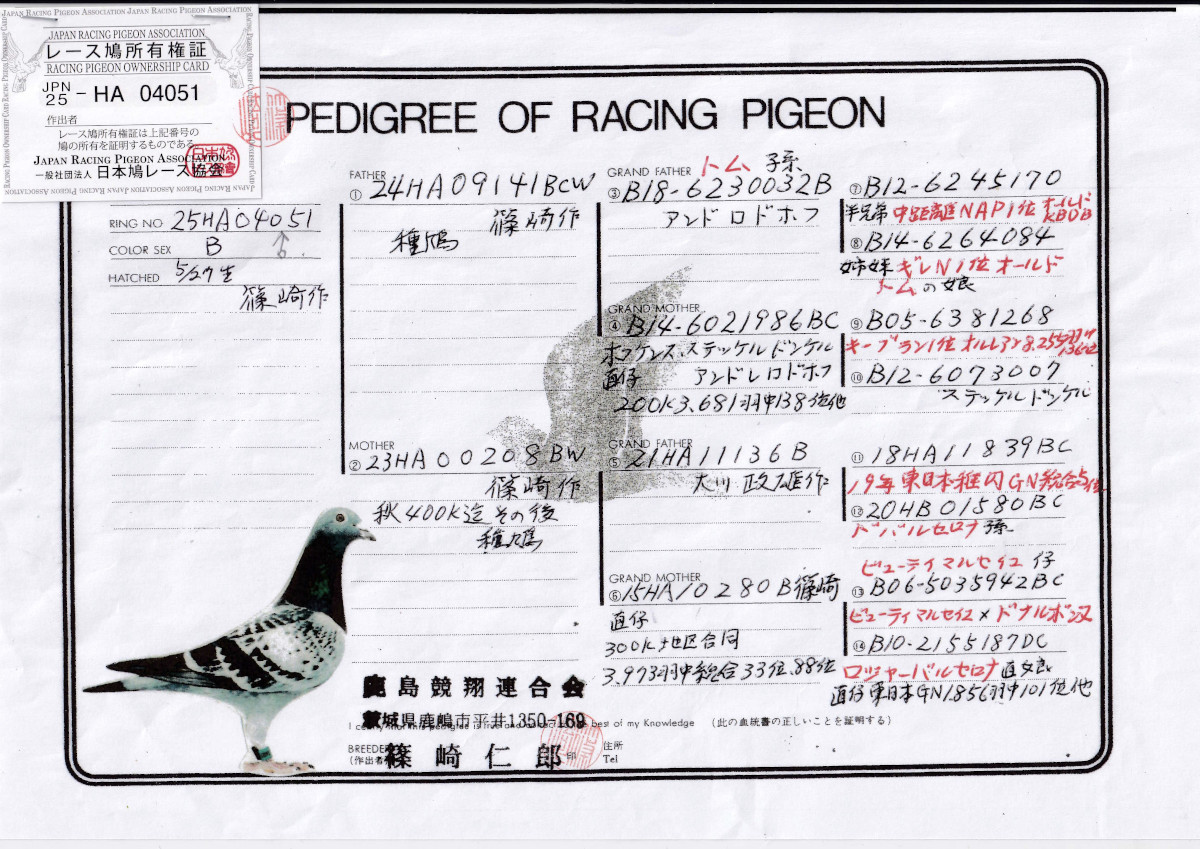 JAPAN RACING PIGEON ASSOCIATION JAPAN RACING PIGEON ASSOCIATION
JAPAN RACING PIGEON ASSOCIATION
レース鳩所有権証
RACING PIGEON OWNERSHIP CARD
JPN 25 - HA 04051
作出者
レース鳩所有権証は上記番号の
鳩の所有を証明するものである
JAPAN RACING PIGEON ASSOCIATION
一般社団法人 日本鳩レース協会
PEDIGREE OF RACING PIGEON
RING NO 25HA04051
COLOR SEX B
HATCHED 5/27生
篠崎作
FATHER
① 24HA09141BCW
篠崎作
種鳩
MOTHER
② 23HA00208BW
篠崎作
秋400K迄その後
種鳩
GRAND FATHER トム 子孫
③ B18-6230032B
アンドロドホフ
GRAND MOTHER
④ B14-6021986BC
ホフケンス、ステッケルドンケル
直仔 アンドレロドホフ
200K3,681羽中138位他
GRAND FATHER
⑤ 21HA11136B
大川 政雄作
GRAND MOTHER
⑥ 15HA10280B篠崎
直仔
300K地区合同
3,973羽中総合33位、88位
⑦ B12-6245170
半兄弟 中距離NAP1位 オールド KBDB
⑧ B14-6264084
姉妹 ギレN1位オールド
トムの娘
⑨ B05-6381268
キーブラン1位 オルレアン8,255羽中136位
⑩ B12-6073007
ステッケルドンケル
⑪ 18HA11839BC
19年東日本稚内GN総合5位
⑫ 20HB01580BC
ドバルセロナ 孫
ビューティマルセイユ 仔
⑬ B06-5035942BC
ビューティマルセイユ×ドナルボンヌ
⑭ B10-2155187DC
ロジャーバルセロナ直女娘
直仔東日本GN1856羽中101位他
鹿島競翔連合会
茨城県鹿嶋市平井1350-169
I certify that this pedigree is true and correct to the best of my Knowledge (此の血統書の正しいことを証明する)
BREEDER
(作出者)
篠崎仁郎
印
住所
Tel